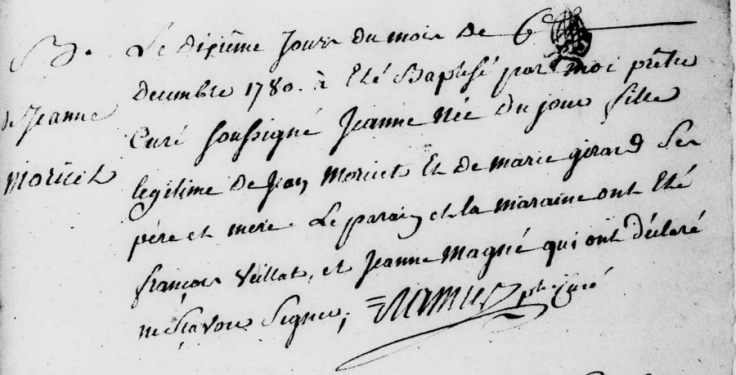 B. Le dixiême Jour du mois de
Decembre 1780. à Eté Baptisé par moi prêtre
de Jeanne Curé soussigné Jeanne Née Du jour fille
Moricet legitime De Jean Moricet Et De marie girard Ses
père et mere Le parain et la maraine ont Eté
françois Veillat, et Jeanne Magné qui ont Déclaré
ne Sçavoir Signer;